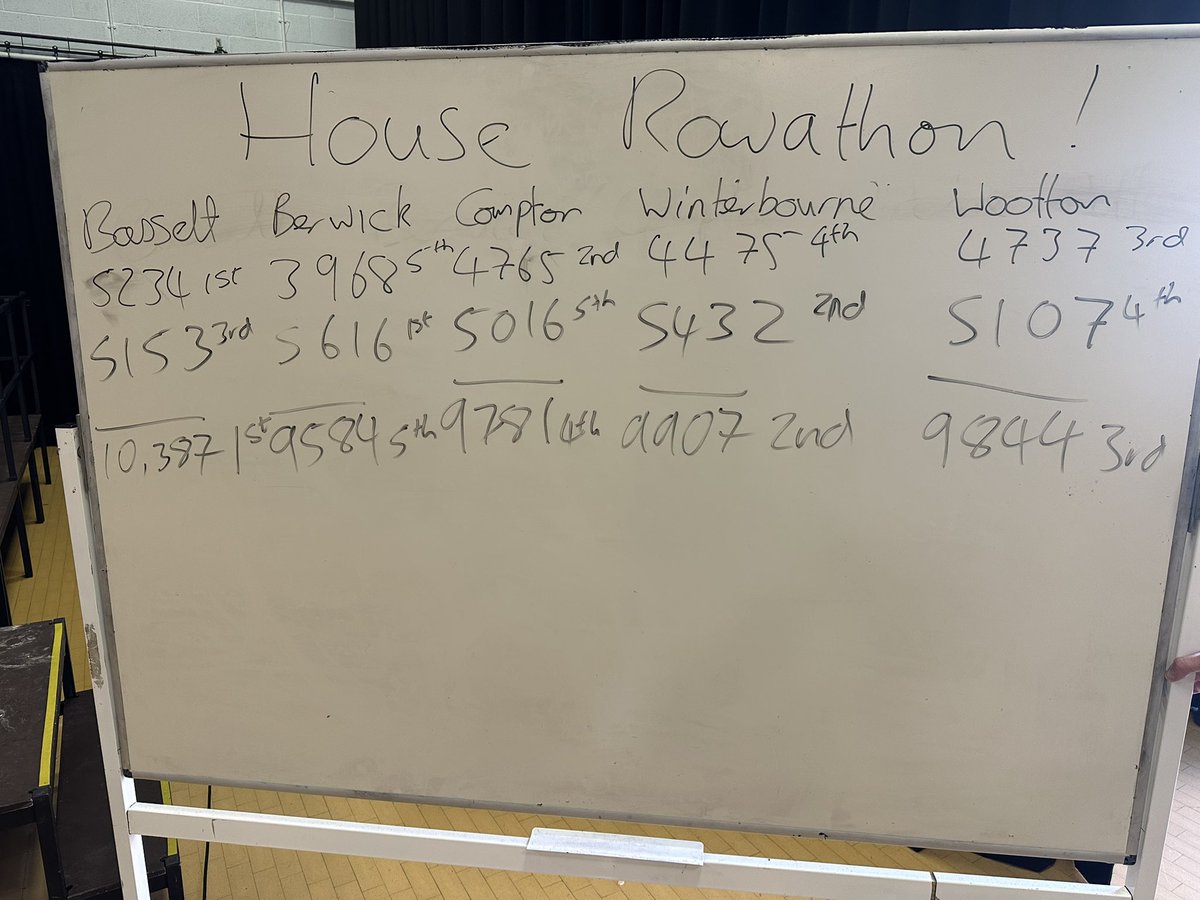 House Rowathon!
Bassett Berwick Compton Winterbourne Wootton
5234 1st 3968 5th 4765 2nd 4475 4th 4737 3rd
5153 3rd 5616 1st 5016 5th 5432 2nd 5107 4th
10,387 1st 9584 5th 9781 4th 9907 2nd 9844 3rd